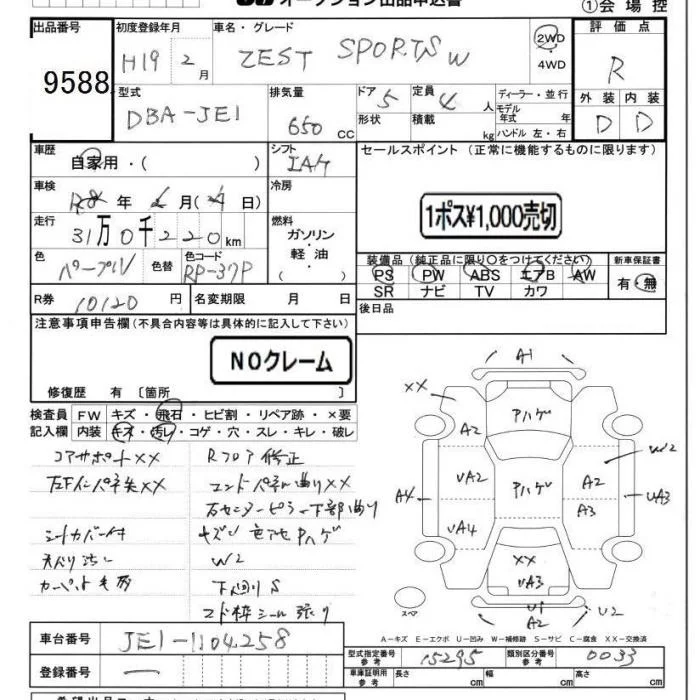 オークション出品申込書
①会場控
出品番号
9588
初度登録年月
H19 2月
車名・グレード
ZEST SPORTS W
2WD
・
4WD
評価点
R
外装 内装
D D
型式
DBA-JE1
排気量
650 CC
ドア 5
形状
定員 4 人
積載 kg
ディーラー・並行
モデル年式 年
ハンドル 左・右
車歴
自家用・( )
シフト
IAT
車検
R8年 2月(4日)
冷房
走行
31万0千220km
燃料
ガソリン
軽油
( )
色
パープルV
色替
色コード
RP-37P
R券 10120 円
名変期限 月 日
セールスポイント (正常に機能するものに限ります)
1ポス¥1,000売切
装備品(純正品に限り〇をつけてください)
PS PW ABS エアB AW
SR ナビ TV カワ
新車保証書
有・無
後日品
注意事項申告欄(不具合内容等は具体的に記入して下さい)
NOクレーム
修復歴 有〔箇所 〕
検査員
記入欄
FW キズ・飛石・ヒビ割・リペア跡・×要
内装 キズ・汚レ・コゲ・穴・スレ・キレ・破レ
コアサポートXX Rフロア修正
左Fインパネ先XX エンドパネル曲りXX
右センターピラー下部曲り
シートカバー付 キズ、色アセPハゲ
天張り汚レ W2
下廻りS
A1
XX
Aハゲ
A2
W2
UA2
Pハゲ
A2
A4
UA3
UA4
A3
XX
UA3
U1
A2
U2
スペア
A-キズ E-エクボ U-凹み W-補修跡 S-サビ C-腐食 XX-交換済
車台番号 JE1-1104258
登録番号 —
型式指定番号
参考
15295
類別区分番号
参考
0033
車庫証明用
参考
長さ cm 幅 cm 高さ cm